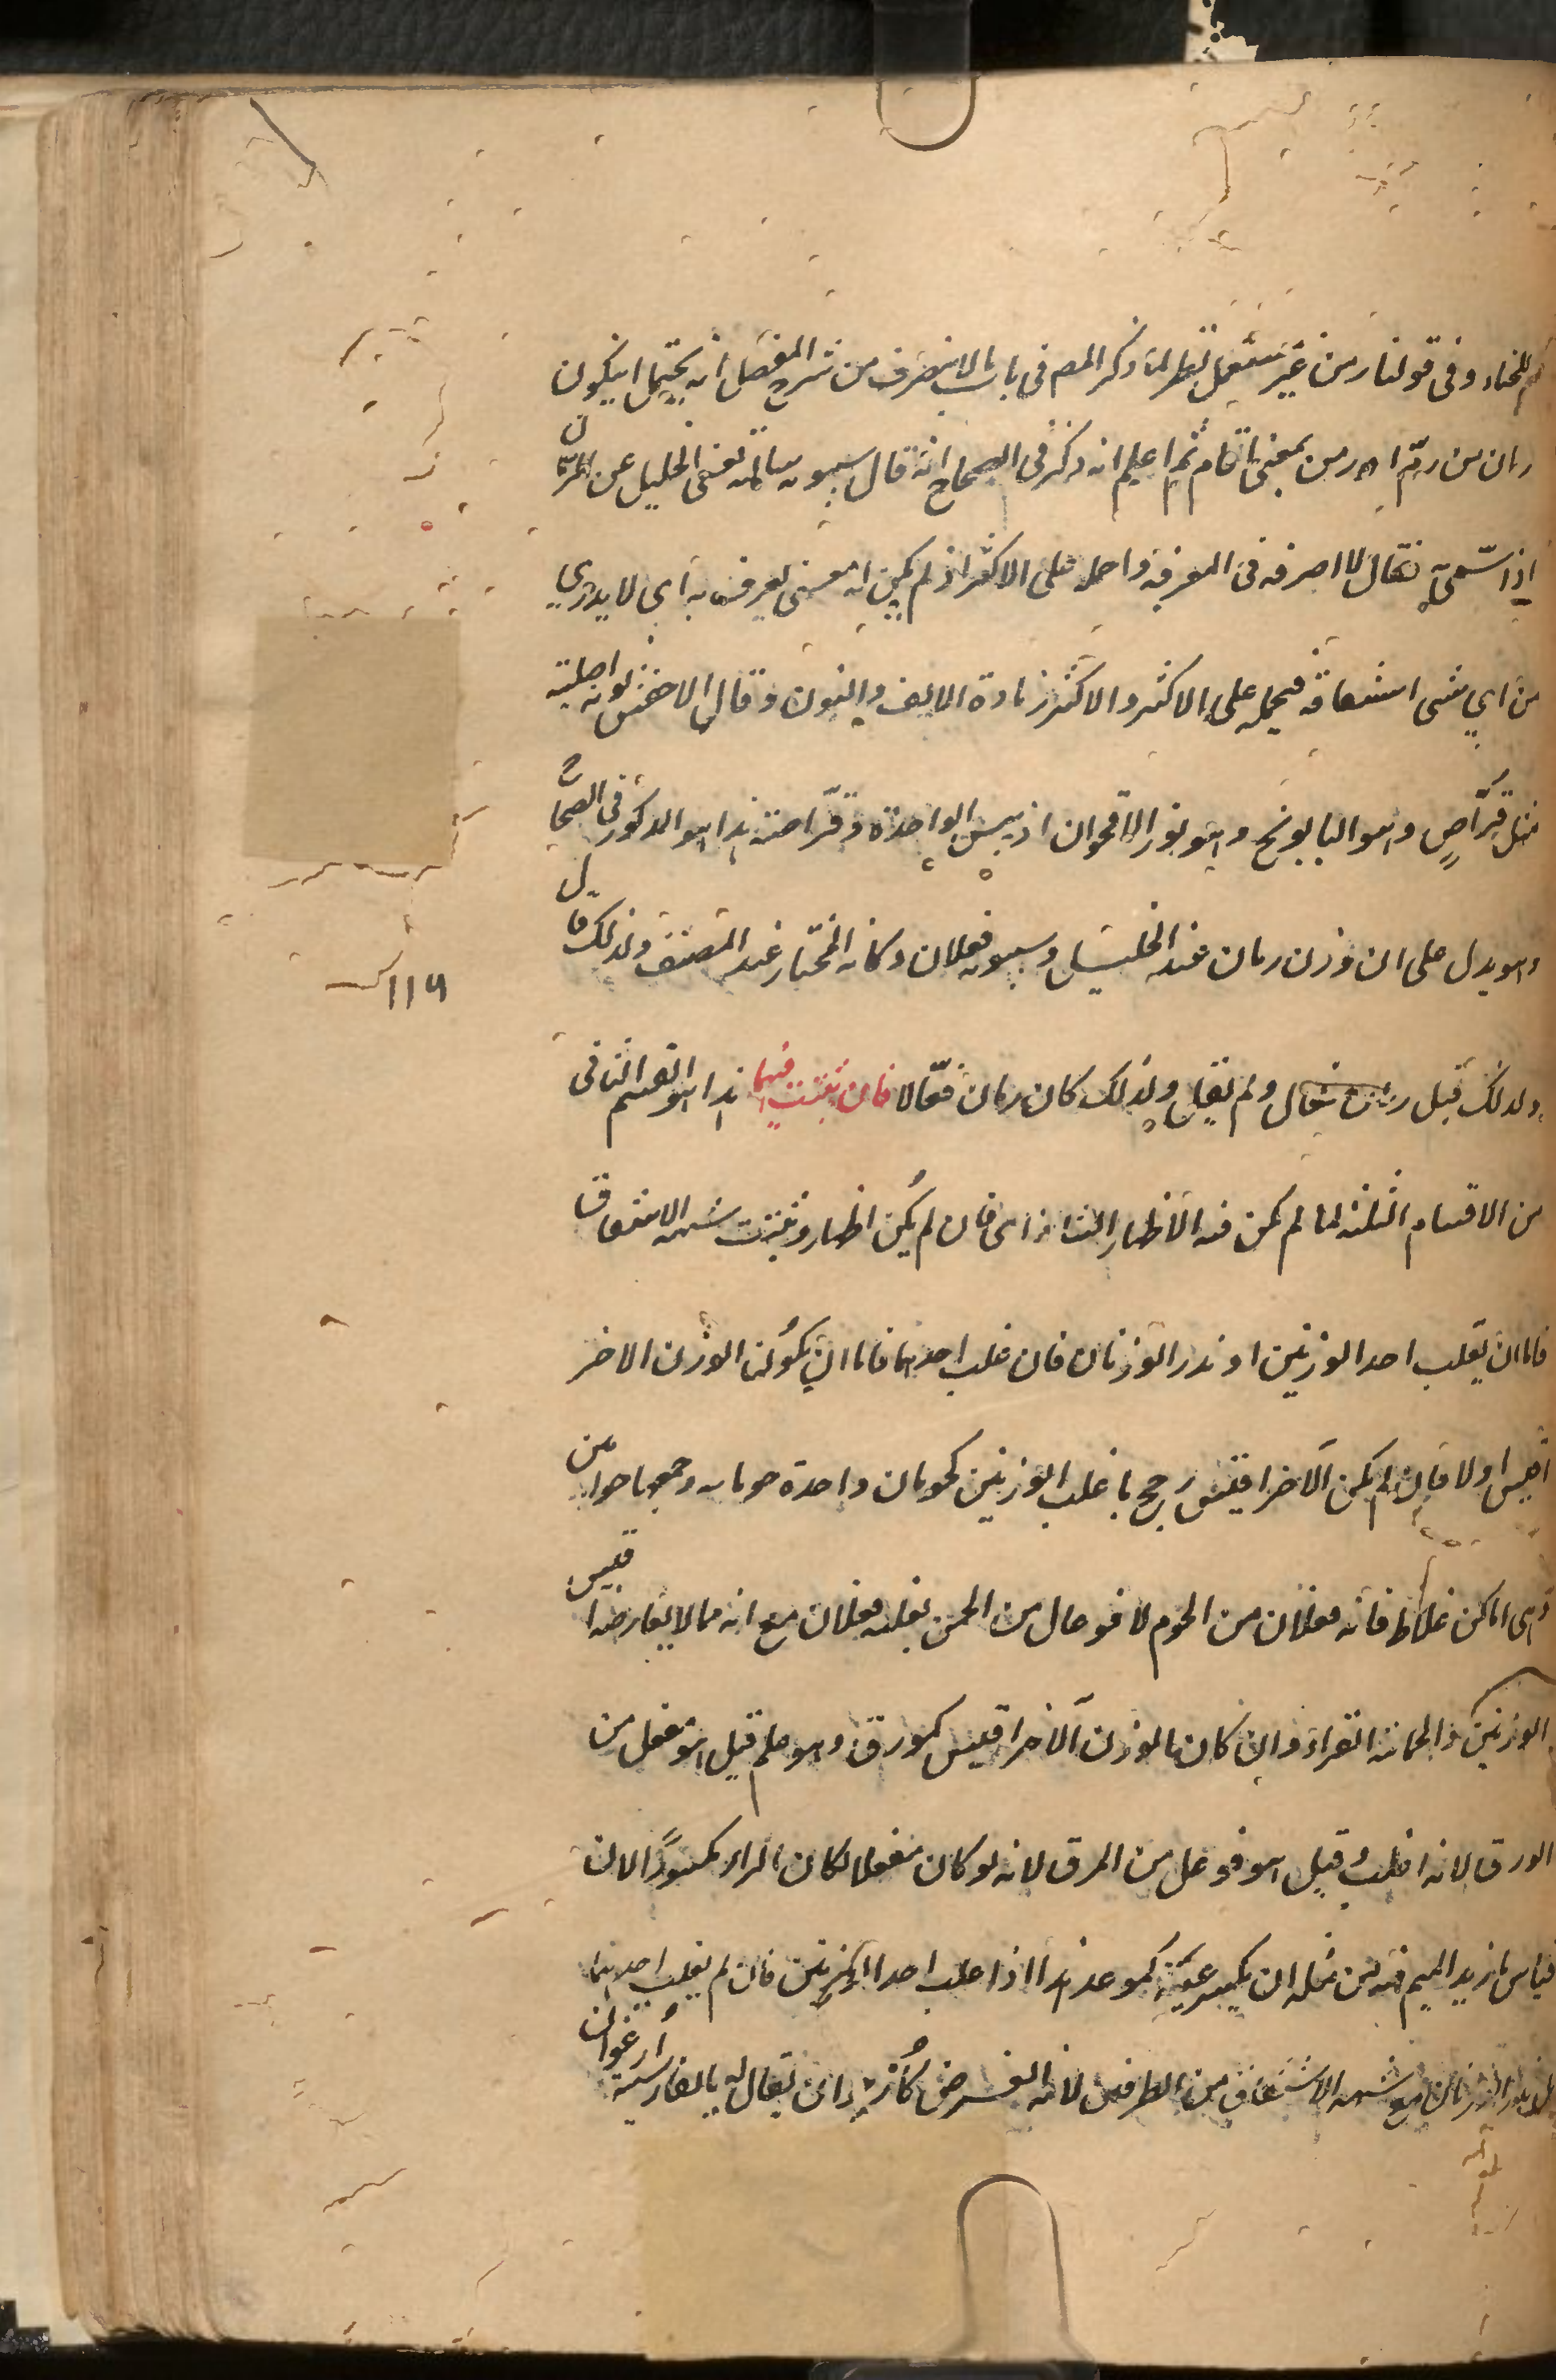 للحناء وفى قولنا رمن غير مستعمل نظر لما ذكر المص فى باب ما لا ينصرف من شرح المفصل انه يحتمل ان يكون
رمان من رمّ او رمن بمعنى اقام ثم اعلم انه ذكر فى الصحاح انه قال سيبويه سالته يعنى الخليل عن الرمان
اذا سمّى به فقال لا اصرفه فى المعرفة واحمله على الاكثر اذ لم يكن له معنى يعرف به اى لا يدرى
من اي شى اشتقاقه فيحمله على الاكثر والاكثر زيادة الالف والنون وقال الاخفش نونه اصلية
مثل قرّاصٍ وهو البابونج وهو نور الاقحوان اذ يبس الواحدة قرّاصة هذا هو المذكور فى الصحاح
وهو يدل على ان وزن رمان عند الخليل وسيبويه فعلان وكانه المختار عند المصنف ولذلك قال
ولذلك قيل رمان فعال ولم يقل ولذلك كان رمان فعّالا فان ثبتت فيهما هذا هو القسم الثانى
من الاقسام الثلثة لما لم يكن فيه الاظهار الشاذ اى فان لم يكن اظهار وثبتت شبهة الاشتقاق
فاما ان يغلب احد الوزنين او ندر الوزنان فان غلب احدهما فاما ان يكون الوزن الاخر
اقيس اولا فان لم يكن الاخر اقيس رجح باغلب الوزنين كحومان واحدة حومانه وجمعها حوامين
وهى اماكن غلاظ فانه فعلان من الحوم لا فوعال من الحمن لغلبة فعلان مع انه مما لا يعارضه اقيس
الوزنين والحمانة القراد وان كان الوزن الاخر اقيس كمورق وهو علم قيل هو مفعل من
الورق لانه اغلب وقيل هو فوعل من المرق لانه لو كان مفعلا لكان الراء مكسوراً لان
قياس ما زيد الميم فيه من مثله ان يكسر عينه كموعد هذا اذا غلب احد الوزنين فان لم يغلب احدهما
بل ندر الوزنان مع شبهة الاشتقاق من الطرفين لانه الفرض كارجوان يقال له بالفارسية ارغوان